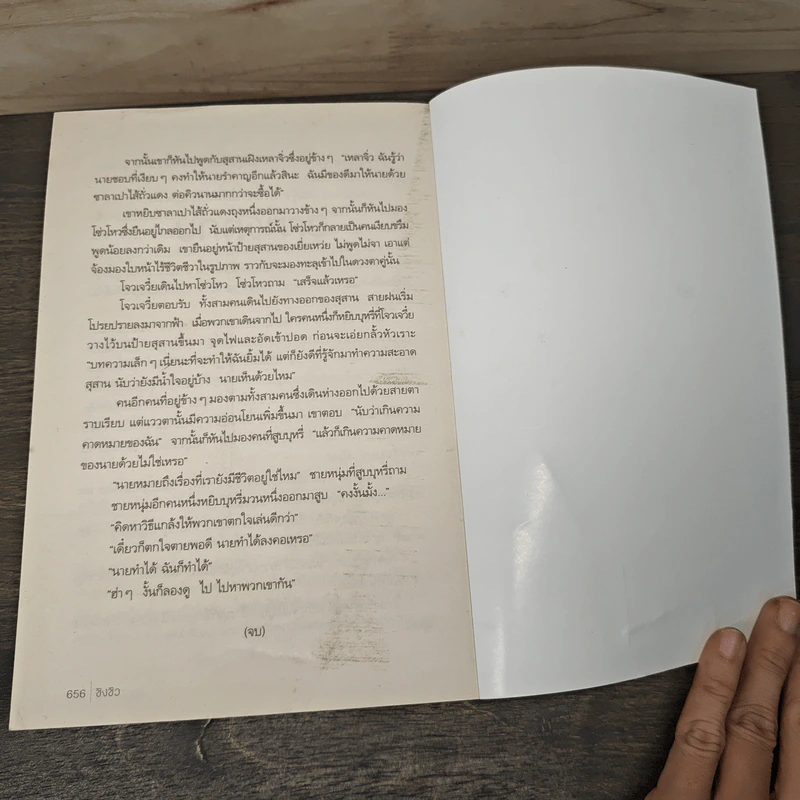 จากนั้นเขาก็หันไปพูดกับสุสานเฝิงเหลาจิ่วซึ่งอยู่ข้าง ๆ “เหลาจิ่ว ฉันรู้ว่า
นายชอบที่เงียบ ๆ คงทำให้นายรำคาญอีกแล้วสินะ ฉันมีของดีมาให้นายด้วย
ซาลาเปาไส้ถั่วแดง ต่อคิวนานมากกว่าจะซื้อได้”
เขาหยิบซาลาเปาไส้ถั่วแดงถุงหนึ่งออกมาวางข้าง ๆ จากนั้นก็หันไปมอง
โซ่วโหวซึ่งยืนอยู่ไกลออกไป นับแต่เหตุการณ์นั้น โซ่วโหวก็กลายเป็นคนเงียบขรึม
พูดน้อยลงกว่าเดิม เขายืนอยู่หน้าป้ายสุสานของเยี่ยเหว่ย ไม่พูดไม่จา เอาแต่
จ้องมองใบหน้าไร้ชีวิตชีวาในรูปภาพ ราวกับจะมองทะลุเข้าไปในดวงตาคู่นั้น
โจวเจวี๋ยเดินไปหาโซ่วโหว โซ่วโหวถาม “เสร็จแล้วเหรอ”
โจวเจวี๋ยตอบรับ ทั้งสามคนเดินไปยังทางออกของสุสาน สายฝนเริ่ม
โปรยปรายลงมาจากฟ้า เมื่อพวกเขาเดินจากไป ใครคนหนึ่งก็หยิบบุหรี่ที่โจวเจวี๋ย
วางไว้บนป้ายสุสานขึ้นมา จุดไฟและอัดเข้าปอด ก่อนจะเอ่ยกลั้วหัวเราะ
“บทความเล็ก ๆ เนี่ยนะที่จะทำให้ฉันยิ้มได้ แต่ก็ยังดีที่รู้จักมาทำความสะอาด
สุสาน นับว่ายังมีน้ำใจอยู่บ้าง นายเห็นด้วยไหม”
คนอีกคนที่อยู่ข้าง ๆ มองตามทั้งสามคนซึ่งเดินห่างออกไปด้วยสายตา
ราบเรียบ แต่แววตานั้นมีความอ่อนโยนเพิ่มขึ้นมา เขาตอบ “นับว่าเกินความ
คาดหมายของฉัน” จากนั้นก็หันไปมองคนที่สูบบุหรี่ “แล้วก็เกินความคาดหมาย
ของนายด้วยไม่ใช่เหรอ”
“นายหมายถึงเรื่องที่เรายังมีชีวิตอยู่ใช่ไหม” ชายหนุ่มที่สูบบุหรี่ถาม
ชายหนุ่มอีกคนหนึ่งหยิบบุหรี่มวนหนึ่งออกมาสูบ “คงงั้นมั้ง...”
“คิดหาวิธีแกล้งให้พวกเขาตกใจเล่นดีกว่า”
“เดี๋ยวก็ตกใจตายพอดี นายทำได้ลงคอเหรอ”
“นายทำได้ ฉันก็ทำได้”
“ฮ่า ๆ งั้นก็ลองดู ไป ไปหาพวกเขากัน”
(จบ)
656 | ชิงชิว